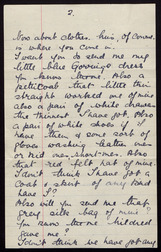 2.
Now about clothes. This, of course,
is where you come in.
I want you to send me my
little blue Governing dress
You know the one. Also a
petticoat that little thin
straight washed one of mine
also a pair of white shoes
the thinnest I have got. Also
a pair of white shoes if I
have them & some sort of
gloves washing leather ones
or red ones, short ones. Also
that red felt hat of mine
I don't think I have got a
coat & skirt of any kind
have I?
Also will you send me that
grey silk bag of mine?
You know the one Mildred
gave me?
I don't think we have got the